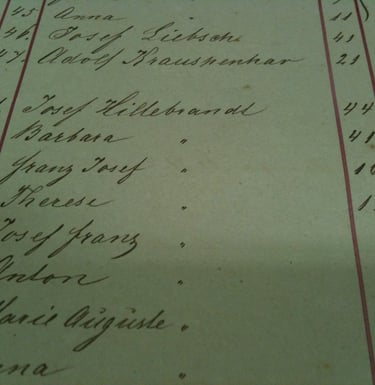 45 Anna 11
46. Josef Liebsche 41
47. Adolf Krauspenhar 21
Josef Hillebrandt 44
Barbara " 41
Franz Josef " 1
Therese " 1
Josef Franz "
Anton "
Marie Auguste "
nna "